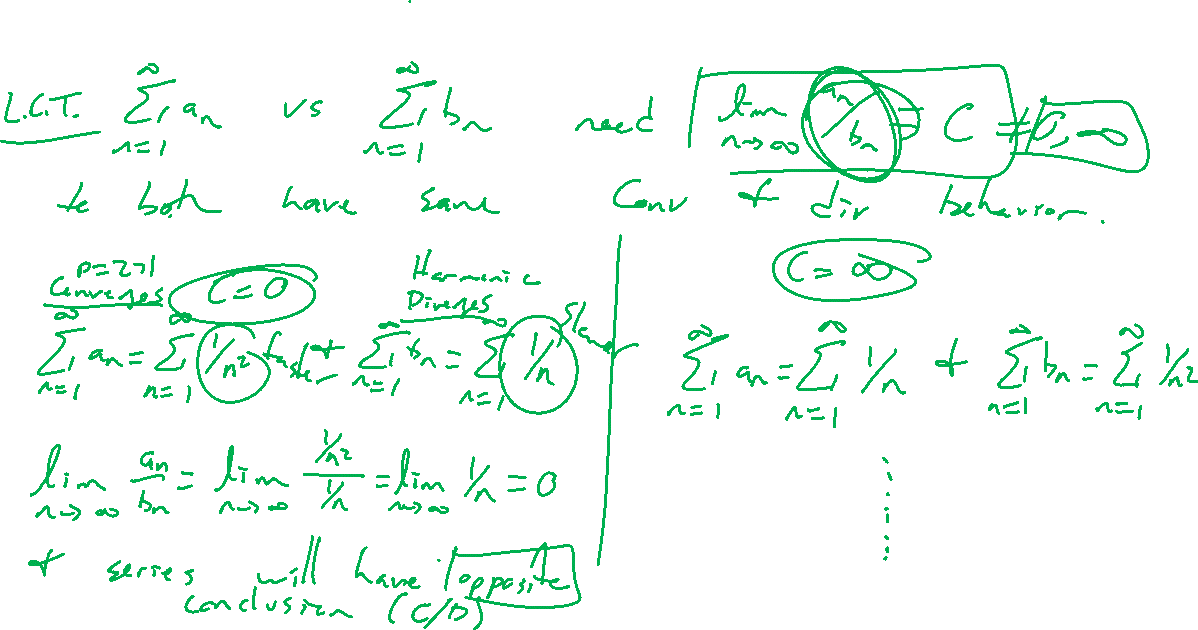 L.C.T. ∞∑n=1 an vs ∞∑n=1 bn need lim n→∞ an/bn = C ≠ 0, ∞
to both have same Conv + div behavior.
p=2>1 Converges C=0 Harmonic Diverges
C=∞
∞∑n=1 an = ∞∑n=1 1/n² faster + ∞∑n=1 bn = ∞∑n=1 1/n slower
∞∑n=1 an = ∞∑n=1 1/n + ∞∑n=1 bn = ∞∑n=1 1/n²
lim n→∞ an/bn = lim n→∞ (1/n²)/(1/n) = lim n→∞ 1/n = 0
+ series will have opposite
conclusion (C/D)